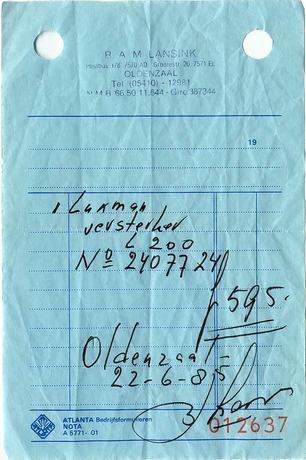 B A M LANSINK
Postbus 178 7570 AD Grootestr. 20 7571 EL
OLDENZAAL
Tel. (05410) - 12981
N.M.B. 66.50.11.844 - Giro 387344
19
1 Luxman
versterker
L 200
No 24077724
f 595.-
Oldenzaal
22-6-85
ATLANTA Bedrijfsformulieren
NOTA
A 5771-01
012637